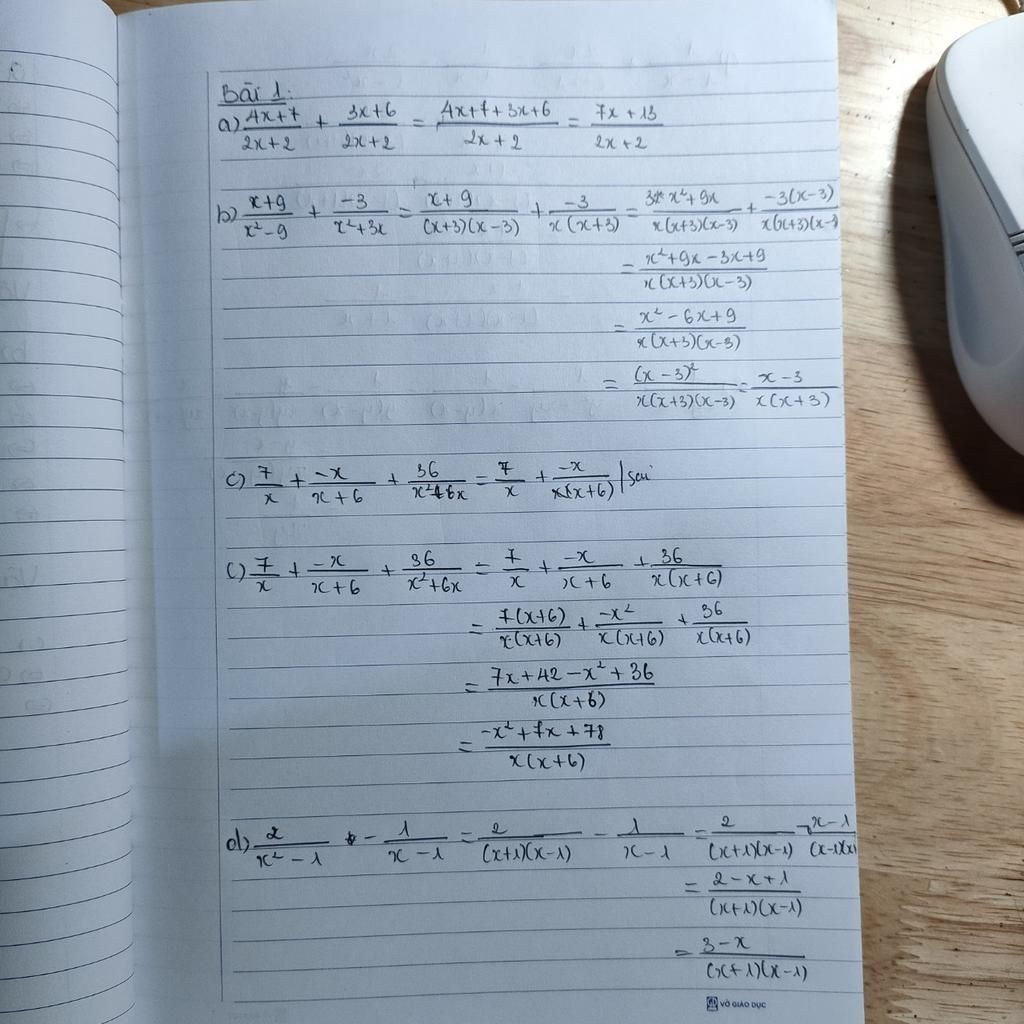 Bài 1:
a) (4x+7)/(2x+2) + (3x+6)/(2x+2) = (4x+7+3x+6)/(2x+2) = (7x+13)/(2x+2)
b) (x+9)/(x²-9) + (-3)/(x²+3x) = (x+9)/((x+3)(x-3)) + (-3)/(x(x+3)) = (x²+9x)/(x(x+3)(x-3)) + (-3(x-3))/(x(x+3)(x-3
= (x²+9x-3x+9)/(x(x+3)(x-3))
= (x²-6x+9)/(x(x+3)(x-3))
= (x-3)²/(x(x+3)(x-3)) = (x-3)/(x(x+3))
c) 7/x + (-x)/(x+6) + 36/(x²+6x) = 7/x + (-x)/(x(x+6)) | sai
c) 7/x + (-x)/(x+6) + 36/(x²+6x) = 7/x + (-x)/(x+6) + 36/(x(x+6))
= (7(x+6))/(x(x+6)) + (-x²)/(x(x+6)) + 36/(x(x+6))
= (7x+42-x²+36)/(x(x+6))
= (-x²+7x+78)/(x(x+6))
d) 2/(x²-1) - 1/(x-1) = 2/((x+1)(x-1)) - 1/(x-1) = 2/((x+1)(x-1)) - (x-1)/((x-1)(x
= (2-x+1)/((x+1)(x-1))
= (3-x)/((x+1)(x-1))
VỞ GIÁO DỤC